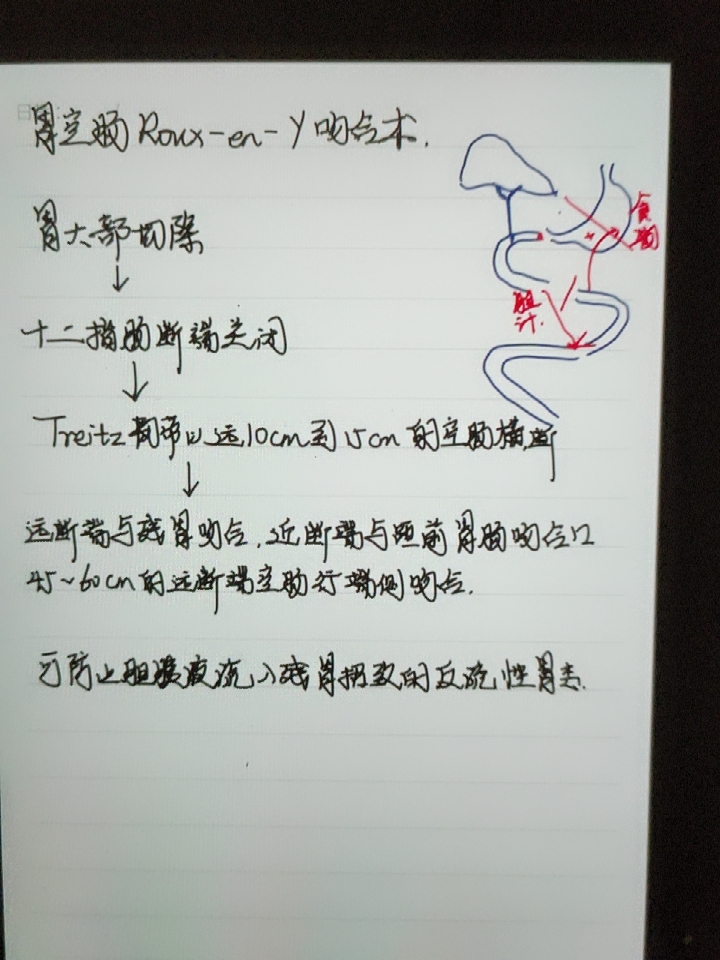 胃空肠Roux-en-Y吻合术.
胃大部切除
↓
十二指肠断端关闭
↓
Treitz韧带以远10cm到15cm的空肠横断
↓
远断端与残胃吻合,近断端与距前胃肠吻合口
45~60cm的远断端空肠行端侧吻合.
可防止胆胰液流入残胃招致的反流性胃炎.
食物
胆汁.